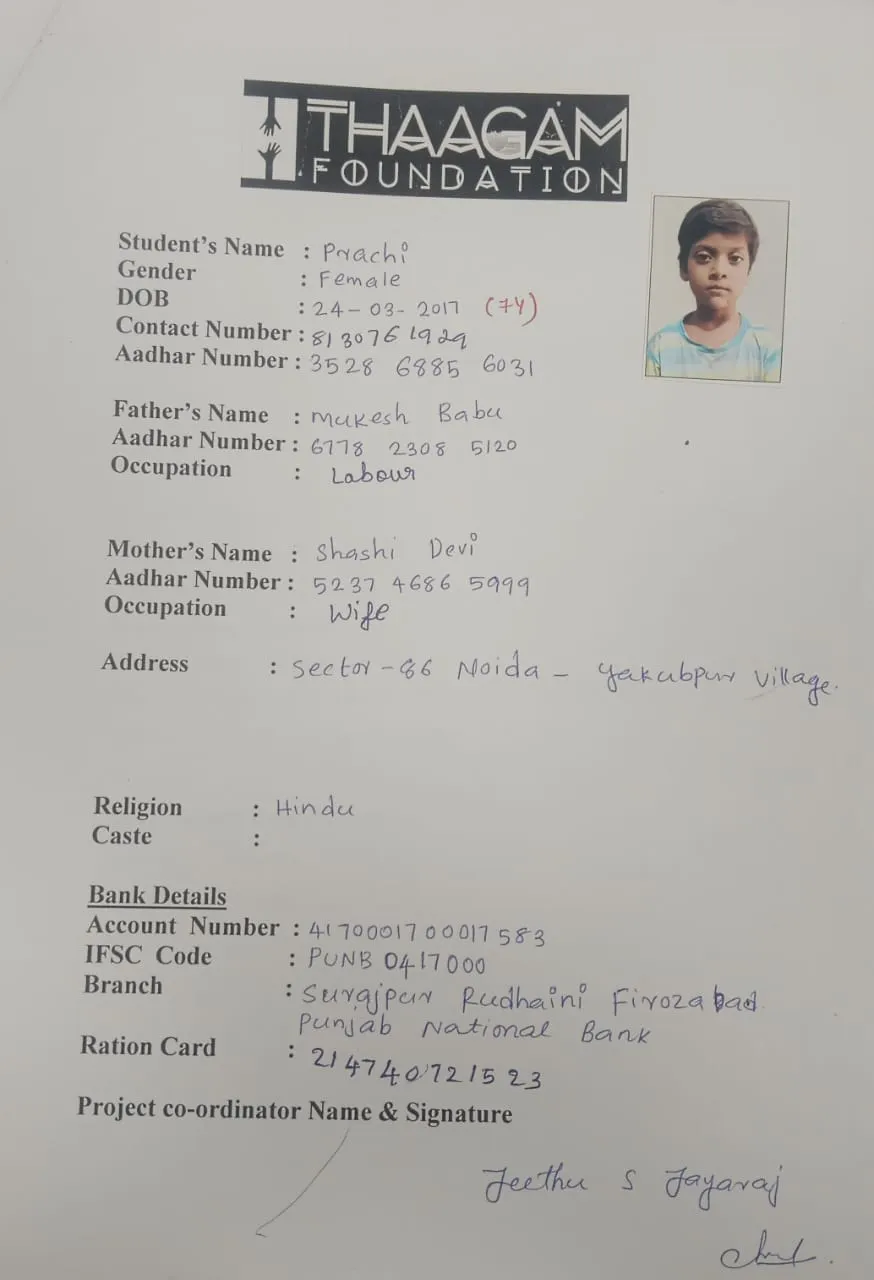 THAAGAM
FOUNDATION
Student's Name : Prachi
Gender : Female
DOB : 24-03-2017 (7Y)
Contact Number : 8130761929
Aadhar Number : 3528 6885 6031
Father's Name : Mukesh Babu
Aadhar Number : 6778 2308 5120
Occupation : Labour
Mother's Name : Shashi Devi
Aadhar Number : 5237 4686 5999
Occupation : Wife
Address : Sector-86 Noida - Yakubpur Village.
Religion : Hindu
Caste :
Bank Details
Account Number : 4170001700017583
IFSC Code : PUNB 0417000
Branch : Surajpur Rudhaini Firozabad
Punjab National Bank
Ration Card : 214740721523
Project co-ordinator Name & Signature
Jeethu S Jayaraj